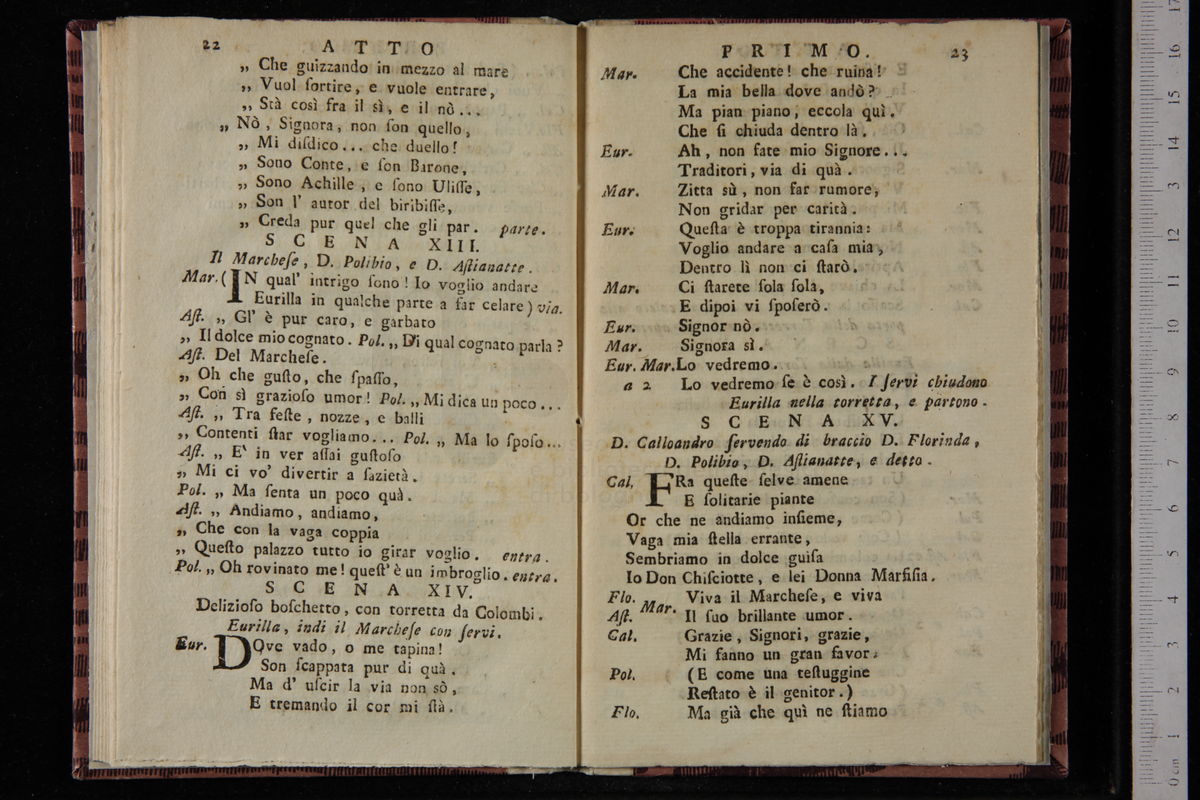 22 ATTO
„ Che guizzando in mezzo al mare
„ Vuol ſortire, e vuole entrare,
„ Stà così fra il sì, e il nò...
„ Nò, Signora, non ſon quello,
„ Mi diſdico... che duello!
„ Sono Conte, e ſon Barone,
„ Sono Achille, e ſono Uliſſe,
„ Son l' autor del biribiſſe,
„ Creda pur quel che gli par. parte.
SCENA XIII.
Il Marcheſe, D. Polibio, e D. Aſtianatte.
Mar. (IN qual' intrigo ſono! Io voglio andare
Eurilla in qualche parte a far celare) via.
Aſt. „ Gl' è pur caro, e garbato
„ Il dolce mio cognato. Pol. „ Di qual cognato parla?
Aſt. Del Marcheſe.
„ Oh che guſto, che ſpaſſo,
„ Con sì grazioſo umor! Pol. „ Mi dica un poco...
Aſt. „ Tra feſte, nozze, e balli
„ Contenti ſtar vogliamo... Pol. „ Ma lo ſpoſo...
Aſt. „ E' in ver aſſai guſtoſo
„ Mi ci vo' divertir a ſazietà.
Pol. „ Ma ſenta un poco quà.
Aſt. „ Andiamo, andiamo,
„ Che con la vaga coppia
„ Queſto palazzo tutto io girar voglio. entra.
Pol. „ Oh rovinato me! queſt' è un imbroglio. entra.
SCENA XIV.
Delizioſo boſchetto, con torretta da Colombi.
Eurilla, indi il Marcheſe con ſervi.
Eur. DOve vado, o me tapina!
Son ſcappata pur di quà.
Ma d' uſcir la via non sò,
E tremando il cor mi ſtà.
PRIMO. 23
Mar. Che accidente! che ruina!
La mia bella dove andò?
Ma pian piano, eccola quì.
Che ſi chiuda dentro là.
Eur. Ah, non fate mio Signore...
Traditori, via di quà.
Mar. Zitta sù, non far rumore,
Non gridar per carità.
Eur. Queſta è troppa tirannia:
Voglio andare a caſa mia,
Dentro lì non ci ſtarò.
Mar. Ci ſtarete ſola ſola,
E dipoi vi ſpoſerò.
Eur. Signor nò.
Mar. Signora sì.
Eur. Mar. Lo vedremo.
a 2 Lo vedremo ſe è così. I ſervi chiudono
Eurilla nella torretta, e partono.
SCENA XV.
D. Calloandro ſervendo di braccio D. Florinda,
D. Polibio, D. Aſtianatte, e detto.
Cal. FRa queſte ſelve amene
E ſolitarie piante
Or che ne andiamo inſieme,
Vaga mia ſtella errante,
Sembriamo in dolce guiſa
Io Don Chiſciotte, e lei Donna Marfiſia.
Flo. Viva il Marcheſe, e viva
Aſt. Mar. Il ſuo brillante umor.
Cal. Grazie, Signori, grazie,
Mi fanno un gran favor.
Pol. (E come una teſtuggine
Reſtato è il genitor.)
Flo. Ma già che quì ne ſtiamo